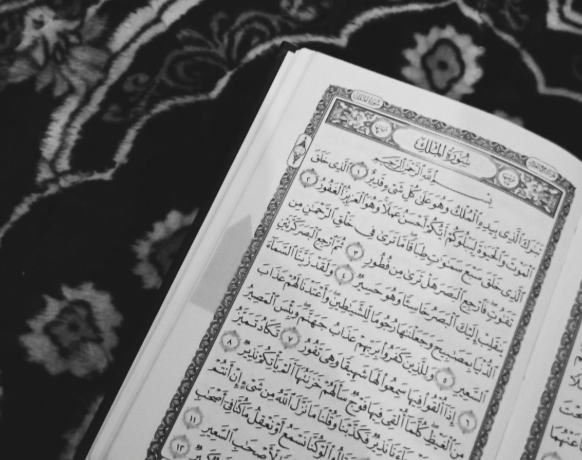 سُورَةُ المُلْكِ
بِسْمِ ٱللَّهِ ٱلرَّحْمَٰنِ ٱلرَّحِيمِ
تَبَٰرَكَ ٱلَّذِى بِيَدِهِ ٱلْمُلْكُ وَهُوَ عَلَىٰ كُلِّ شَىْءٍ قَدِيرٌ ١ ٱلَّذِى خَلَقَ
ٱلْمَوْتَ وَٱلْحَيَوٰةَ لِيَبْلُوَكُمْ أَيُّكُمْ أَحْسَنُ عَمَلًا وَهُوَ ٱلْعَزِيزُ ٱلْغَفُورُ ٢
ٱلَّذِى خَلَقَ سَبْعَ سَمَٰوَٰتٍ طِبَاقًا مَّا تَرَىٰ فِى خَلْقِ ٱلرَّحْمَٰنِ مِن
تَفَٰوُتٍ فَٱرْجِعِ ٱلْبَصَرَ هَلْ تَرَىٰ مِن فُطُورٍ ٣ ثُمَّ ٱرْجِعِ ٱلْبَصَرَ كَرَّتَيْنِ
يَنقَلِبْ إِلَيْكَ ٱلْبَصَرُ خَاسِئًا وَهُوَ حَسِيرٌ ٤ وَلَقَدْ زَيَّنَّا ٱلسَّمَآءَ
ٱلدُّنْيَا بِمَصَٰبِيحَ وَجَعَلْنَٰهَا رُجُومًا لِّلشَّيَٰطِينِ وَأَعْتَدْنَا لَهُمْ عَذَابَ
ٱلسَّعِيرِ ٥ وَلِلَّذِينَ كَفَرُوا۟ بِرَبِّهِمْ عَذَابُ جَهَنَّمَ وَبِئْسَ ٱلْمَصِيرُ
٦ إِذَآ أُلْقُوا۟ فِيهَا سَمِعُوا۟ لَهَا شَهِيقًا وَهِىَ تَفُورُ ٧ تَكَادُ تَمَيَّزُ
مِنَ ٱلْغَيْظِ كُلَّمَآ أُلْقِىَ فِيهَا فَوْجٌ سَأَلَهُمْ خَزَنَتُهَآ أَلَمْ يَأْتِكُمْ نَذِيرٌ ٨
جَآءَنَا نَذِيرٌ فَكَذَّبْنَا وَقُلْنَا مَا نَزَّلَ ٱللَّهُ مِن شَىْءٍ إِنْ أَنتُمْ
لَوْ كُنَّا نَسْمَعُ أَوْ نَعْقِلُ مَا كُنَّا فِىٓ أَصْحَٰبِ
لِّأَصْحَٰبِ ٱلسَّعِيرِ ١١
١٢